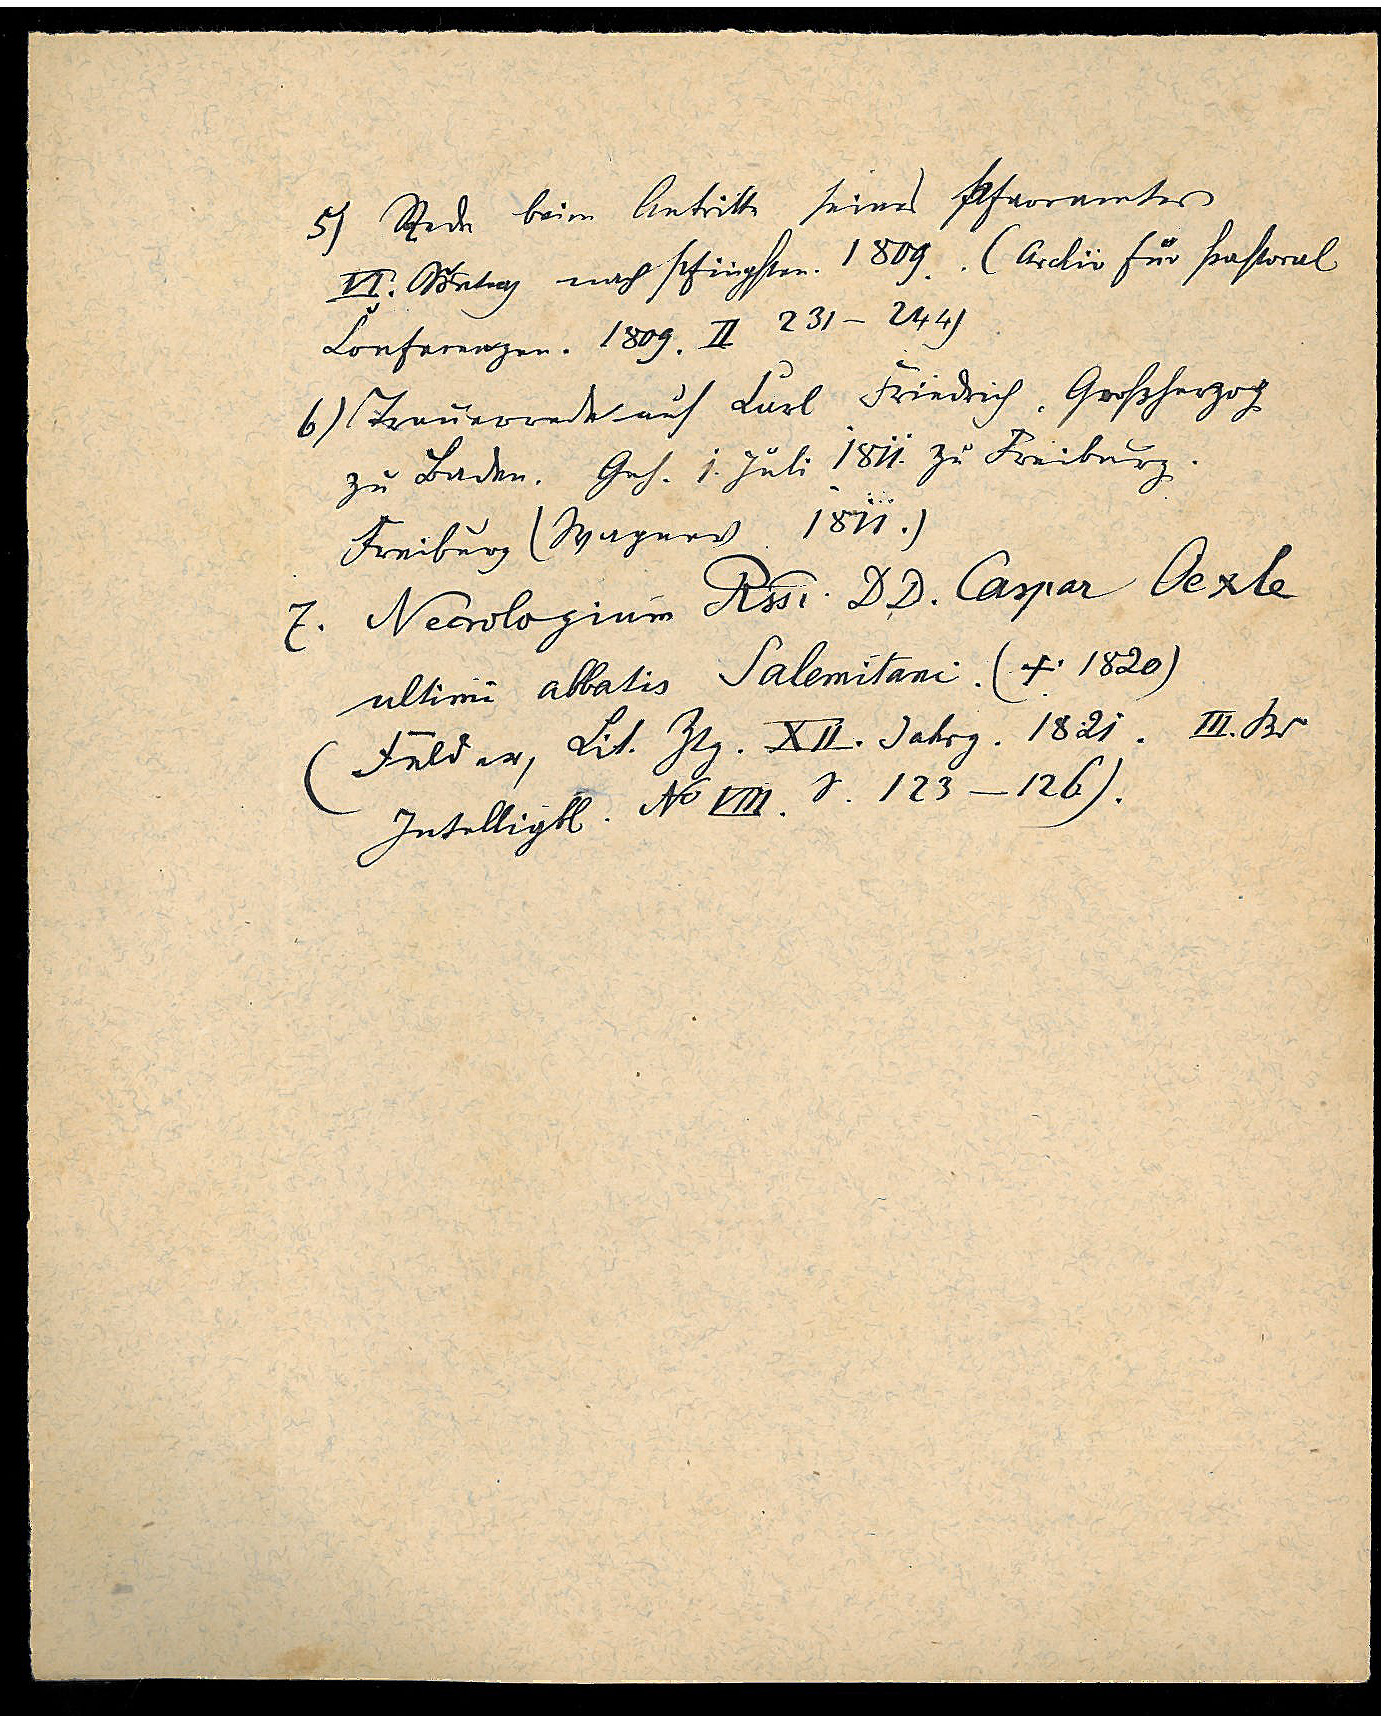 5) Rede beim Antritte seines Pfarramtes
VI. Sonntag nach Pfingsten. 1809. (Archiv für Pastoral
Conferenzen. 1809. II 231 – 244)
6) Trauerrede auf Carl Friedrich, Großherzog
zu Baden. Geh. 1. Juli 1811. zu Freiburg.
Freiburg (Wagner 1811.)
7. Necrologium Rssi. DD. Caspar Oexle
ultimi abbatis Salemitani. († 1820)
(Felder, Lit. Ztg. XII. Jahrg. 1821. III. Bd
Intelligbl. No VIII. S. 123 – 126).